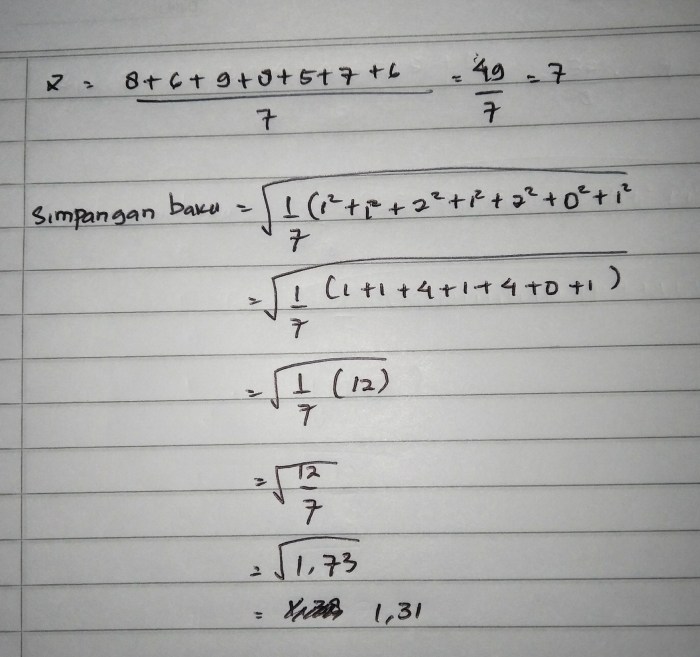 x̄ = 8+6+9+8+5+7+6 / 7 = 49 / 7 = 7
Simpangan baku = √ 1/7 (1²+1²+2²+1²+2²+0²+1²
= √ 1/7 (1+1+4+1+4+0+1)
= √ 1/7 (12)
= √ 12/7
= √1,73
= 1,31